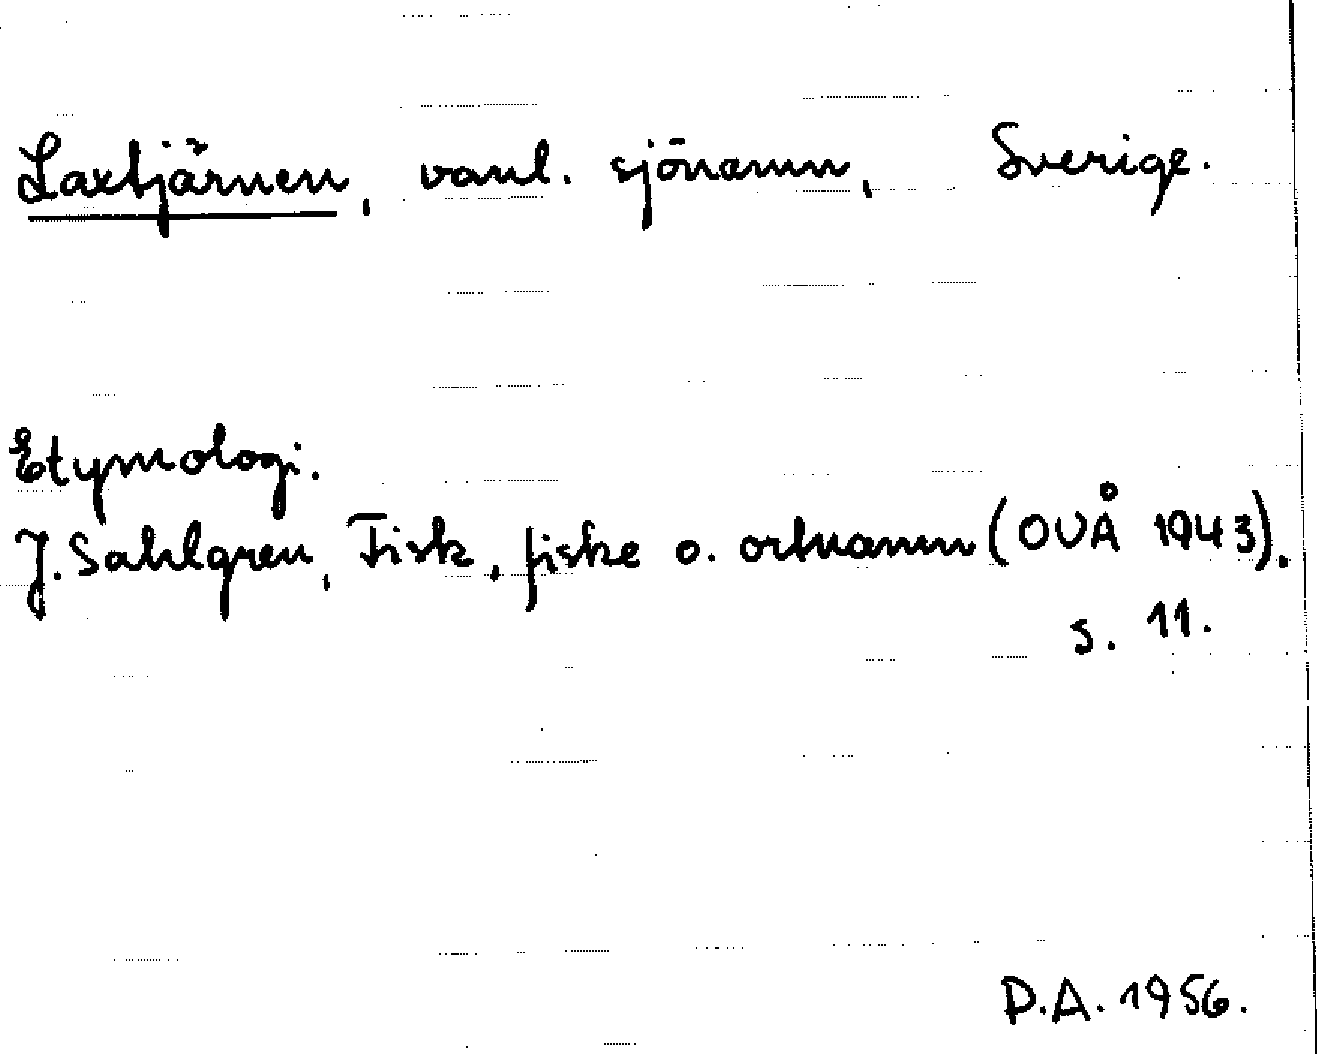 Laxtjärnen, vanl. sjönamn, Sverige.
Etymologi.
J. Sahlgren, Fisk, fiske o. ortnamn (OUÅ 1943).
s. 11.
D.A. 1956.